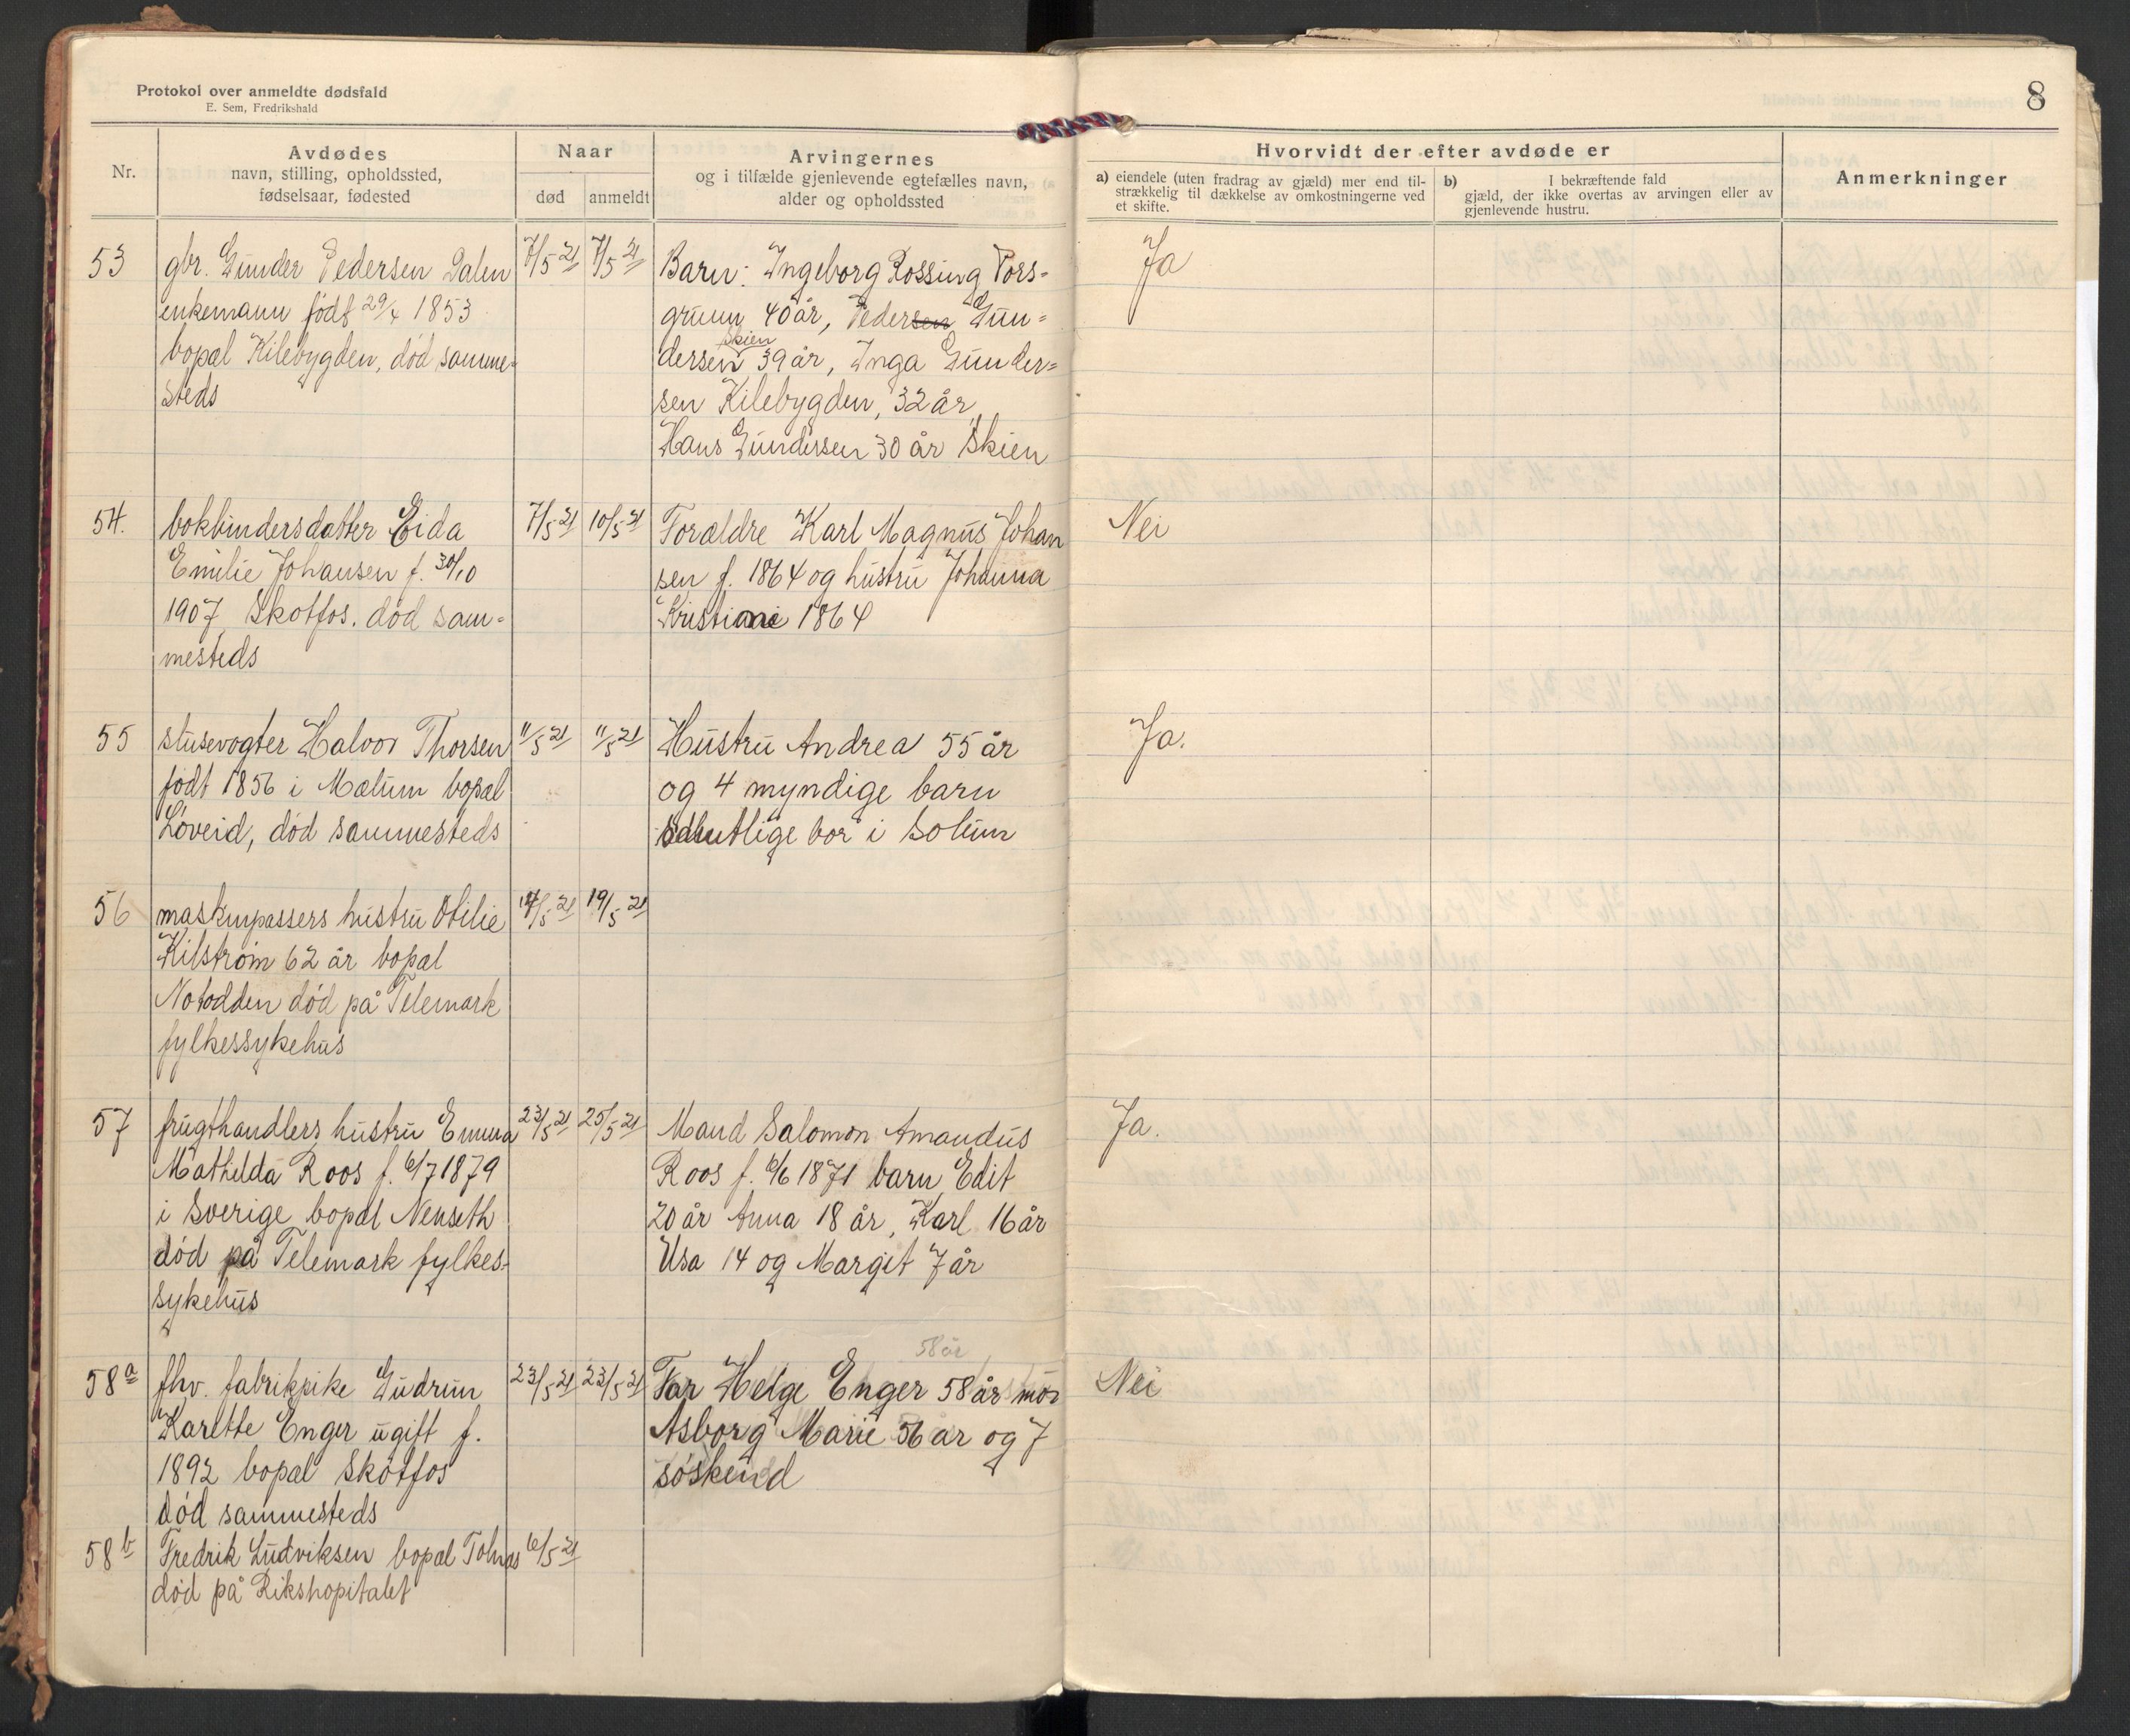 Protokol over anmeldte dødsfald
E. Sem, Fredrikshald
8
Nr.
Avdødes
navn, stilling, opholdssted,
fødselsaar, fødested
Naar
død
anmeldt
Arvingernes
og i tilfælde gjenlevende egtefælles navn,
alder og opholdssted
Hvorvidt der efter avdøde er
a) eiendele (uten fradrag av gjæld) mer end til-
strækkelig til dækkelse av omkostningerne ved
et skifte.
b) I bekræftende fald
gjæld, der ikke overtas av arvingen eller av
gjenlevende hustru.
Anmerkninger
53 gbr. Gunder Pedersen Dalen 7/5 21 7/5 21 Barn: Ingeborg Rossing Pors= Ja
enkemann født 29/4 1853 grunn 40 år, Pedersen Gun=
skien
bopæl Kilebygden, død samme= dersen 39 år, Inga Gunder=
steds sen Kilebygden, 32 år,
Hans Gundersen 30 år Skien
54. bokbindersdatter Eida 7/5 21 10/5 21 Forældre Karl Magnus Johan Nei
Emilie Johansen f. 30/10 sen f. 1864 og hustru Johanna
1907, Skotfos. død sam= Kristiane 1864
mesteds
55 slusevogter Halvor Thorsen 11/5 21 11/5 21 Hustru Andrea 55 år Ja.
født 1856 i Mælum bopæl og 4 myndige barn
Løveid, død sammesteds samtlige bor i Solum
56 maskinpassers hustru Otilie 19/5 21
Kilstrøm 62 år bopæl
Notodden død på Telemark
fylkessykehus
57 frugthandlers hustru Emma 23/5 21 25/5 21 Mand Salomon Amandus Ja.
Mathilda Roos f. 6/7 1879 Roos f. 1871 barn Edit
i Sverige bopæl Nenseth 20 år Anna 18 år, Karl 16 år
død på Telemark fylkes- 14 og Margit 7 år
sykehus
58 år
58 a fhv. fabrikpike Gudrun 23/5 21 23/5 21 Far Helge Enger 58 år mor Nei
Karette Enger ugift f. Asborg Marie 56 år og 7
1892 bopæl Skotfos søskend
død sammesteds
58 b Fredrik Ludviksen bopæl Tolnæs 6/5 21
død på Rikshopitalet